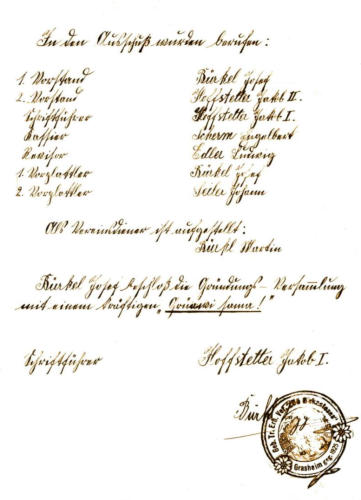 In den Ausschuß wurden berufen:
1. Vorstand Bürkel Josef
2. Vorstand Hoffstetter Jakob II.
Schriftführer Hoffstetter Jakob I.
Kassier Scherm Engelbert
Revisor Edler Ludwig
1. Vorplattler Bürkel Josef
2. Vorplattler Seiler Johann
Als Vereinsdiener ist aufgestellt:
Bürkl Martin
Bürkel Josef beschloß die Gründungs-Versammlung
mit einem kräftigen „Grüawi sama!"
Schriftführer Hoffstetter Jakob I.
Geb. Tr. Erh. Ver.
Grasheim gegr. 1925